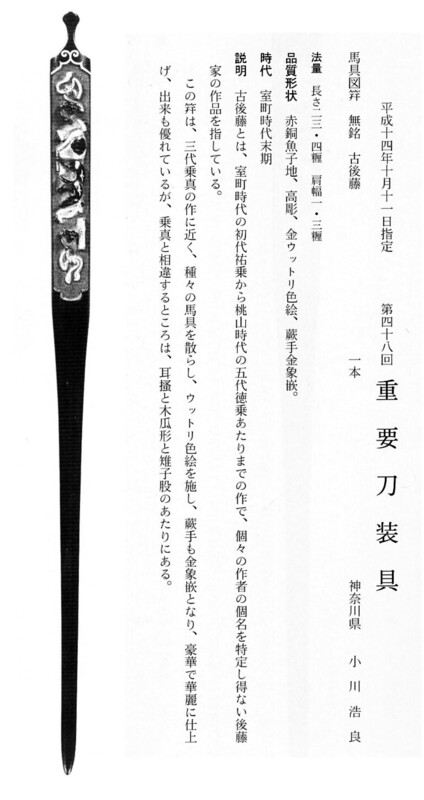 平成十四年十月十一日指定　第四十八回　重要刀装具
馬具図笄　無銘　古後藤　一本　神奈川県　小川浩良
法量　長さ二三・四糎　肩幅一・三糎
品質形状　赤銅魚子地、高彫、金ウットリ色絵、蕨手金象嵌。
時代　室町時代末期
説明　古後藤とは、室町時代の初代祐乗から桃山時代の五代徳乗あたりまでの作で、個々の作者の個名を特定し得ない後藤
家の作品を指している。
この笄は、三代乗真の作に近く、種々の馬具を散らし、ウットリ色絵を施し、蕨手も金象嵌となり、豪華で華麗に仕上
げ、出来も優れているが、乗真と相違するところは、耳掻と木瓜形と雉子股のあたりにある。